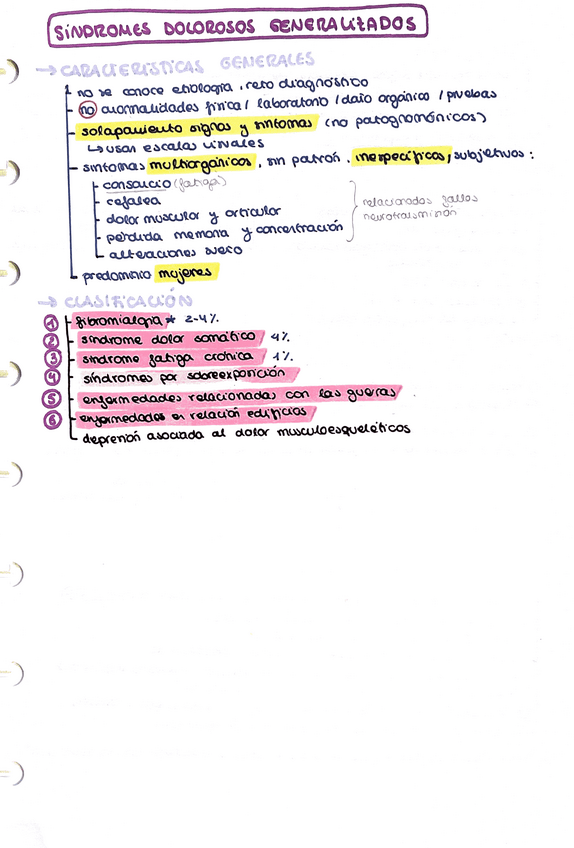 SÍNDROMES DOLOROSOS GENERALIZADOS
→ CARACTERÍSTICAS GENERALES
no se conoce etiología, reto diagnóstico
no anormalidades física / laboratorio / daño orgánico / pruebas
solapamiento signos y síntomas (no patognomónicos)
↳ usar escalas
síntomas multiorgánicos, sin patrón, inespecíficos, subjetivos:
cansancio (fatiga)
cefalea
dolor muscular y articular
pérdida memoria y concentración
alteraciones sueño
relacionados fallos
neurotrasmisión
predominio mujeres
→ CLASIFICACIÓN
1 fibromialgia * 2-4%
2 síndrome dolor somático 4%
3 síndrome fatiga crónica 1%
4 síndromes por sobreexposición
5 enfermedades relacionadas con las guerras
6 enfermedades en relación edificios
depresión asociada al dolor musculoesqueléticos